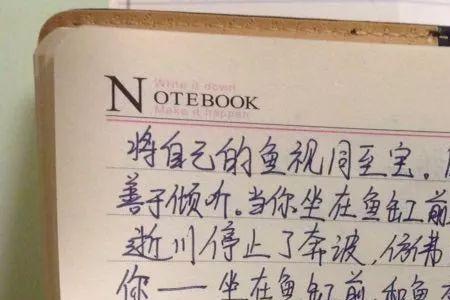 Write it down
NOTEBOOK
Make it happen
将自己的鱼视同至宝。
善于倾听。当你坐在鱼缸前
逝川停止了奔波,仿佛
你——坐在鱼缸前,和鱼